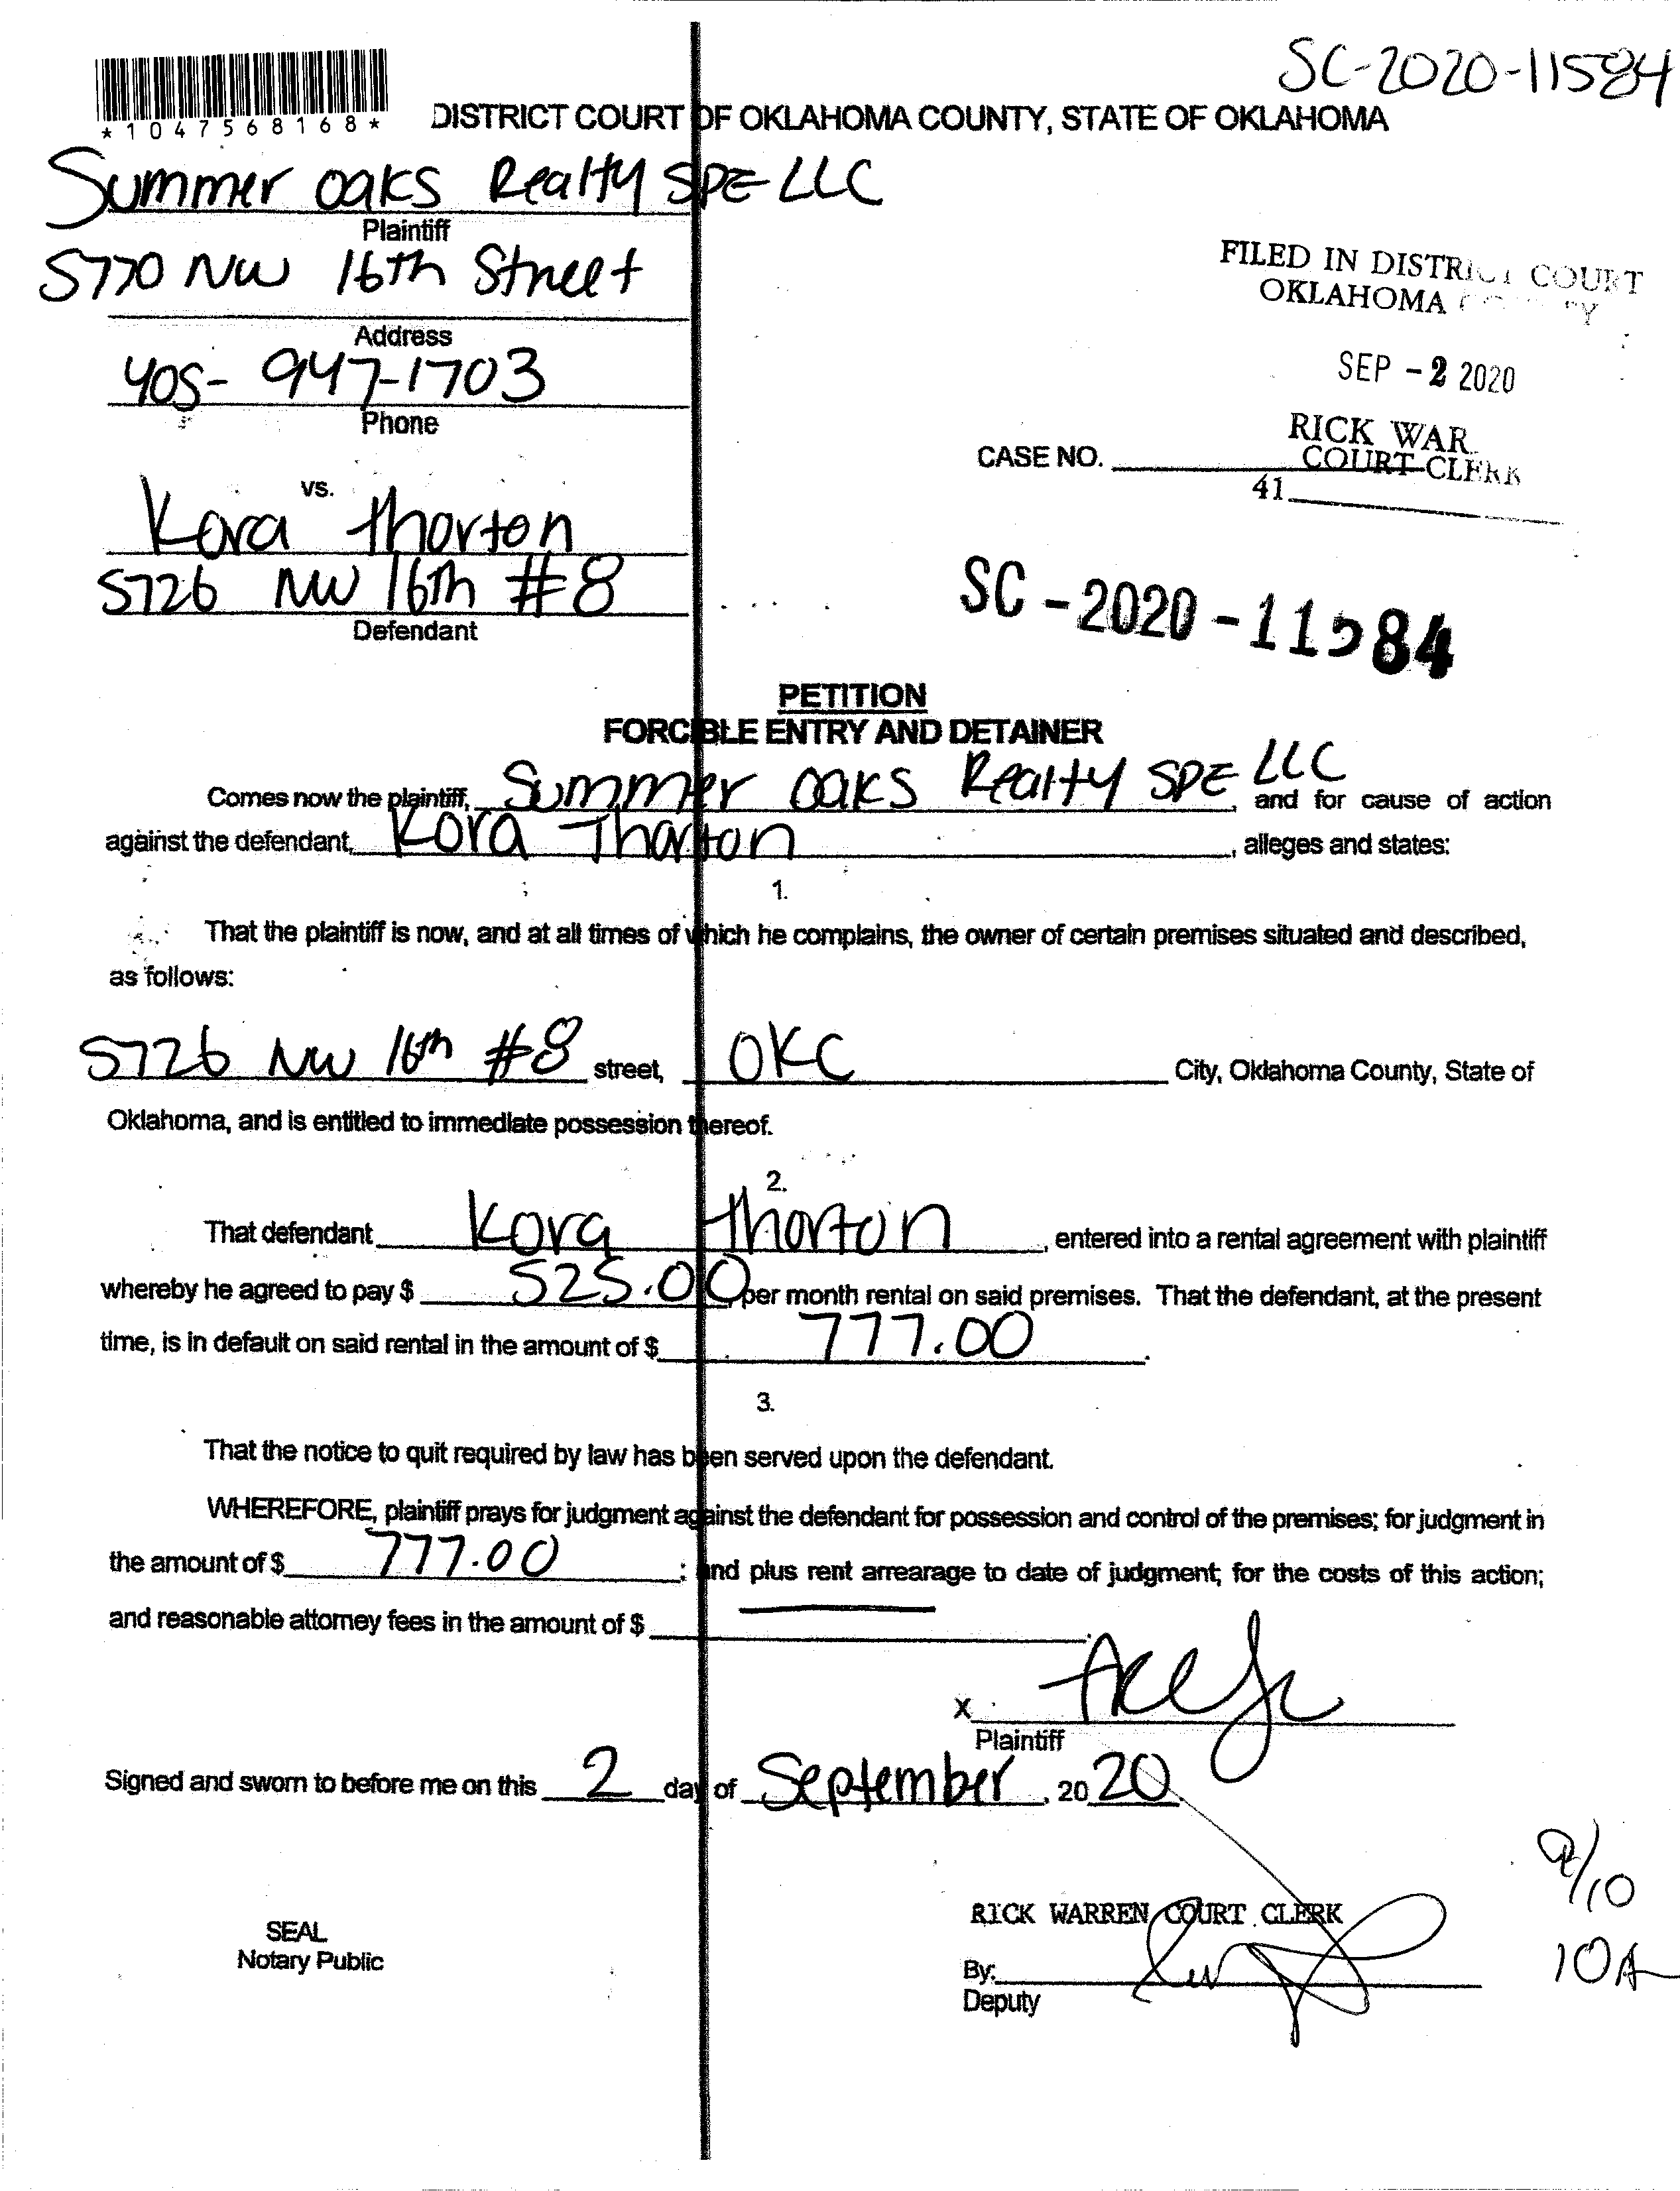 SC-2020-11584
*1047568168*
DISTRICT COURT OF OKLAHOMA COUNTY, STATE OF OKLAHOMA
Summer oaks Realty SPE LLC
Plaintiff
5770 NW 16th Street
Address
405-947-1703
Phone
FILED IN DISTRICT COURT
OKLAHOMA COUNTY
SEP - 2 2020
RICK WAR
COURT CLERK
CASE NO.
41
vs.
Kora Thorton
5726 NW 16th #8
Defendant
SC-2020-11584
PETITION
FORCIBLE ENTRY AND DETAINER
Comes now the plaintiff, Summer oaks Realty SPE LLC, and for cause of action
against the defendant, Kora Thorton, alleges and states:
1.
That the plaintiff is now, and at all times of which he complains, the owner of certain premises situated and described,
as follows:
5726 NW 16th #8 street, OKC City, Oklahoma County, State of
Oklahoma, and is entitled to immediate possession thereof.
2.
That defendant Kora Thorton, entered into a rental agreement with plaintiff
whereby he agreed to pay $ 525.00, per month rental on said premises. That the defendant, at the present
time, is in default on said rental in the amount of $ 777.00.
3.
That the notice to quit required by law has been served upon the defendant.
WHEREFORE, plaintiff prays for judgment against the defendant for possession and control of the premises; for judgment in
the amount of $ 777.00; and plus rent arrearage to date of judgment; for the costs of this action;
and reasonable attorney fees in the amount of $
X
Plaintiff
Signed and sworn to before me on this 2 day of September, 2020
9/10
10A
RICK WARREN COURT CLERK
SEAL
Notary Public
By:
Deputy